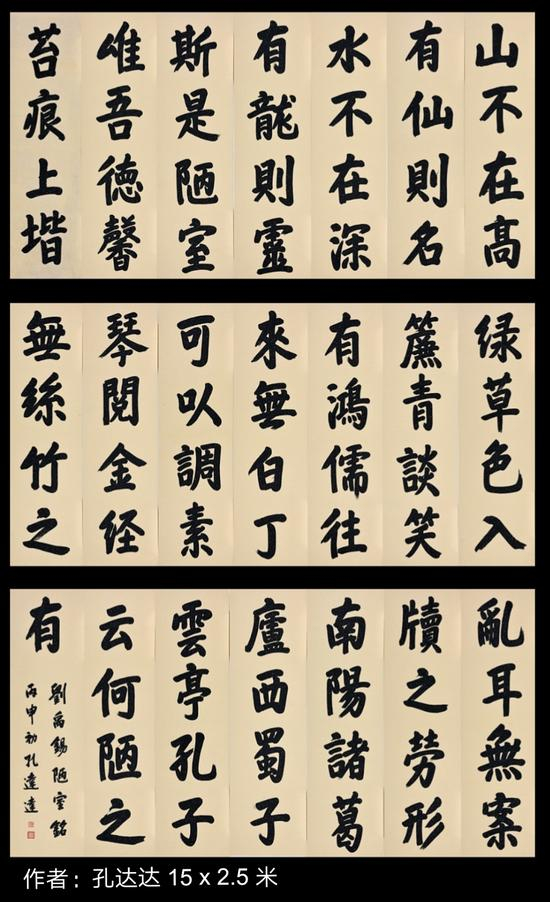 山不在高
有仙則名
水不在深
有龍則靈
斯是陋室
唯吾德馨
苔痕上堦
绿草色入
簾青談笑
有鴻儒往
來無白丁
可以調素
琴閱金经
無絲竹之
亂耳無案
牘之勞形
南陽諸葛
廬西蜀子
雲亭孔子
云何陋之
有
劉禹錫陋室銘
丙申初孔達達
作者：孔达达 15 x 2.5 米